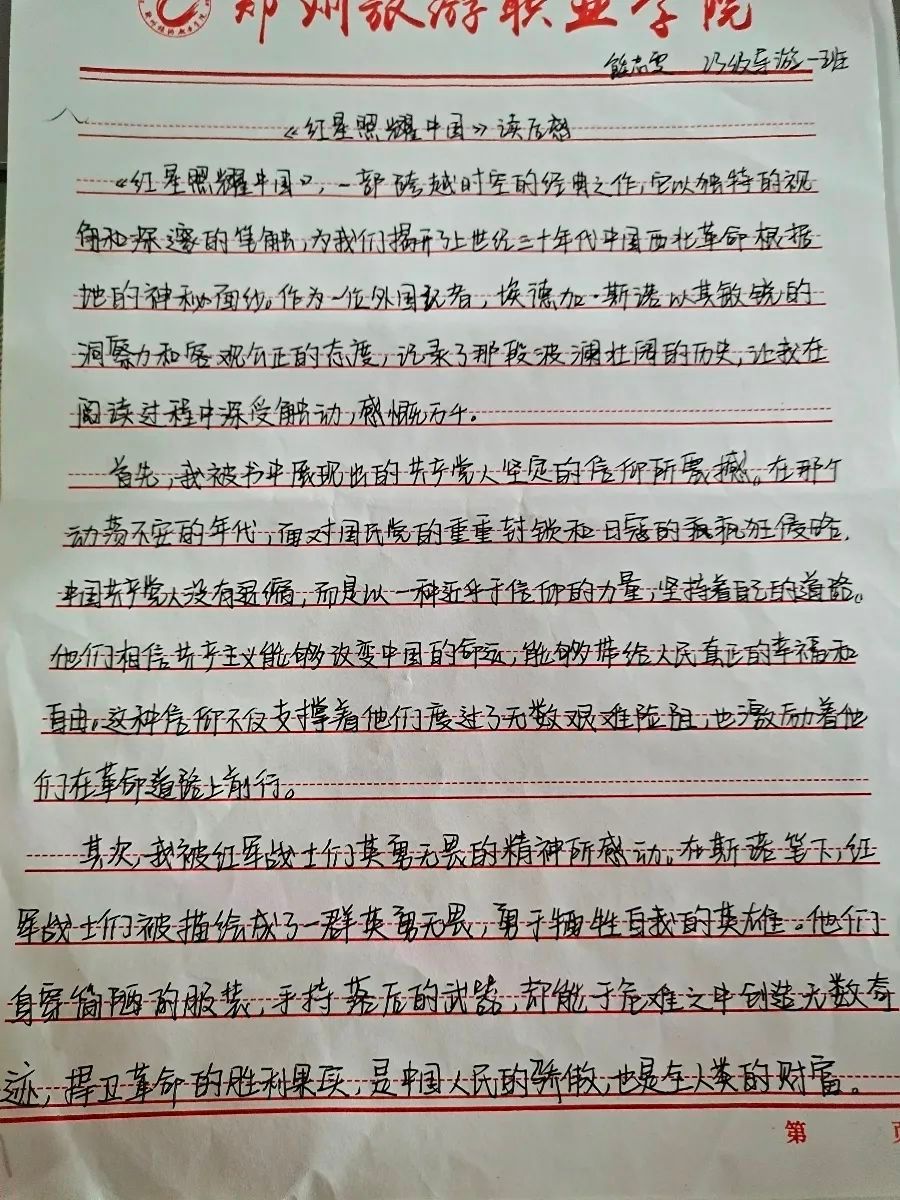 郑州旅游职业学院
23级导游一班
《红星照耀中国》读后感
《红星照耀中国》，一部跨越时空的经典之作，它以独特的视
角和深邃的笔触，为我们揭开了上世纪三十年代中国西北革命根据
地的神秘面纱。作为一位外国记者，埃德加·斯诺以其敏锐的
洞察力和客观公正的态度，记录了那段波澜壮阔的历史，让我在
阅读过程中深受触动，感慨万千。
首先，我被书中展现出的共产党人坚定的信仰所震撼。在那个
动荡不安的年代，面对国民党的重重封锁和日寇的疯疯狂侵略，
中国共产党人没有退缩，而是以一种近乎于信仰的力量，坚持着自己的道路。
他们相信共产主义能够改变中国的命运，能够带给人民真正的幸福和
自由。这种信仰不仅支撑着他们度过了无数艰难险阻，也激励着他
们在革命道路上前行。
其次，我被红军战士们英勇无畏的精神所感动。在斯诺笔下，红
军战士们被描绘成了一群英勇无畏，勇于牺牲自我的英雄。他们
身穿简陋的服装，手持落后的武器，却能于危难之中创造无数奇
迹，捍卫革命的胜利果实，是中国人民的骄傲，也是全人类的财富。
第 页